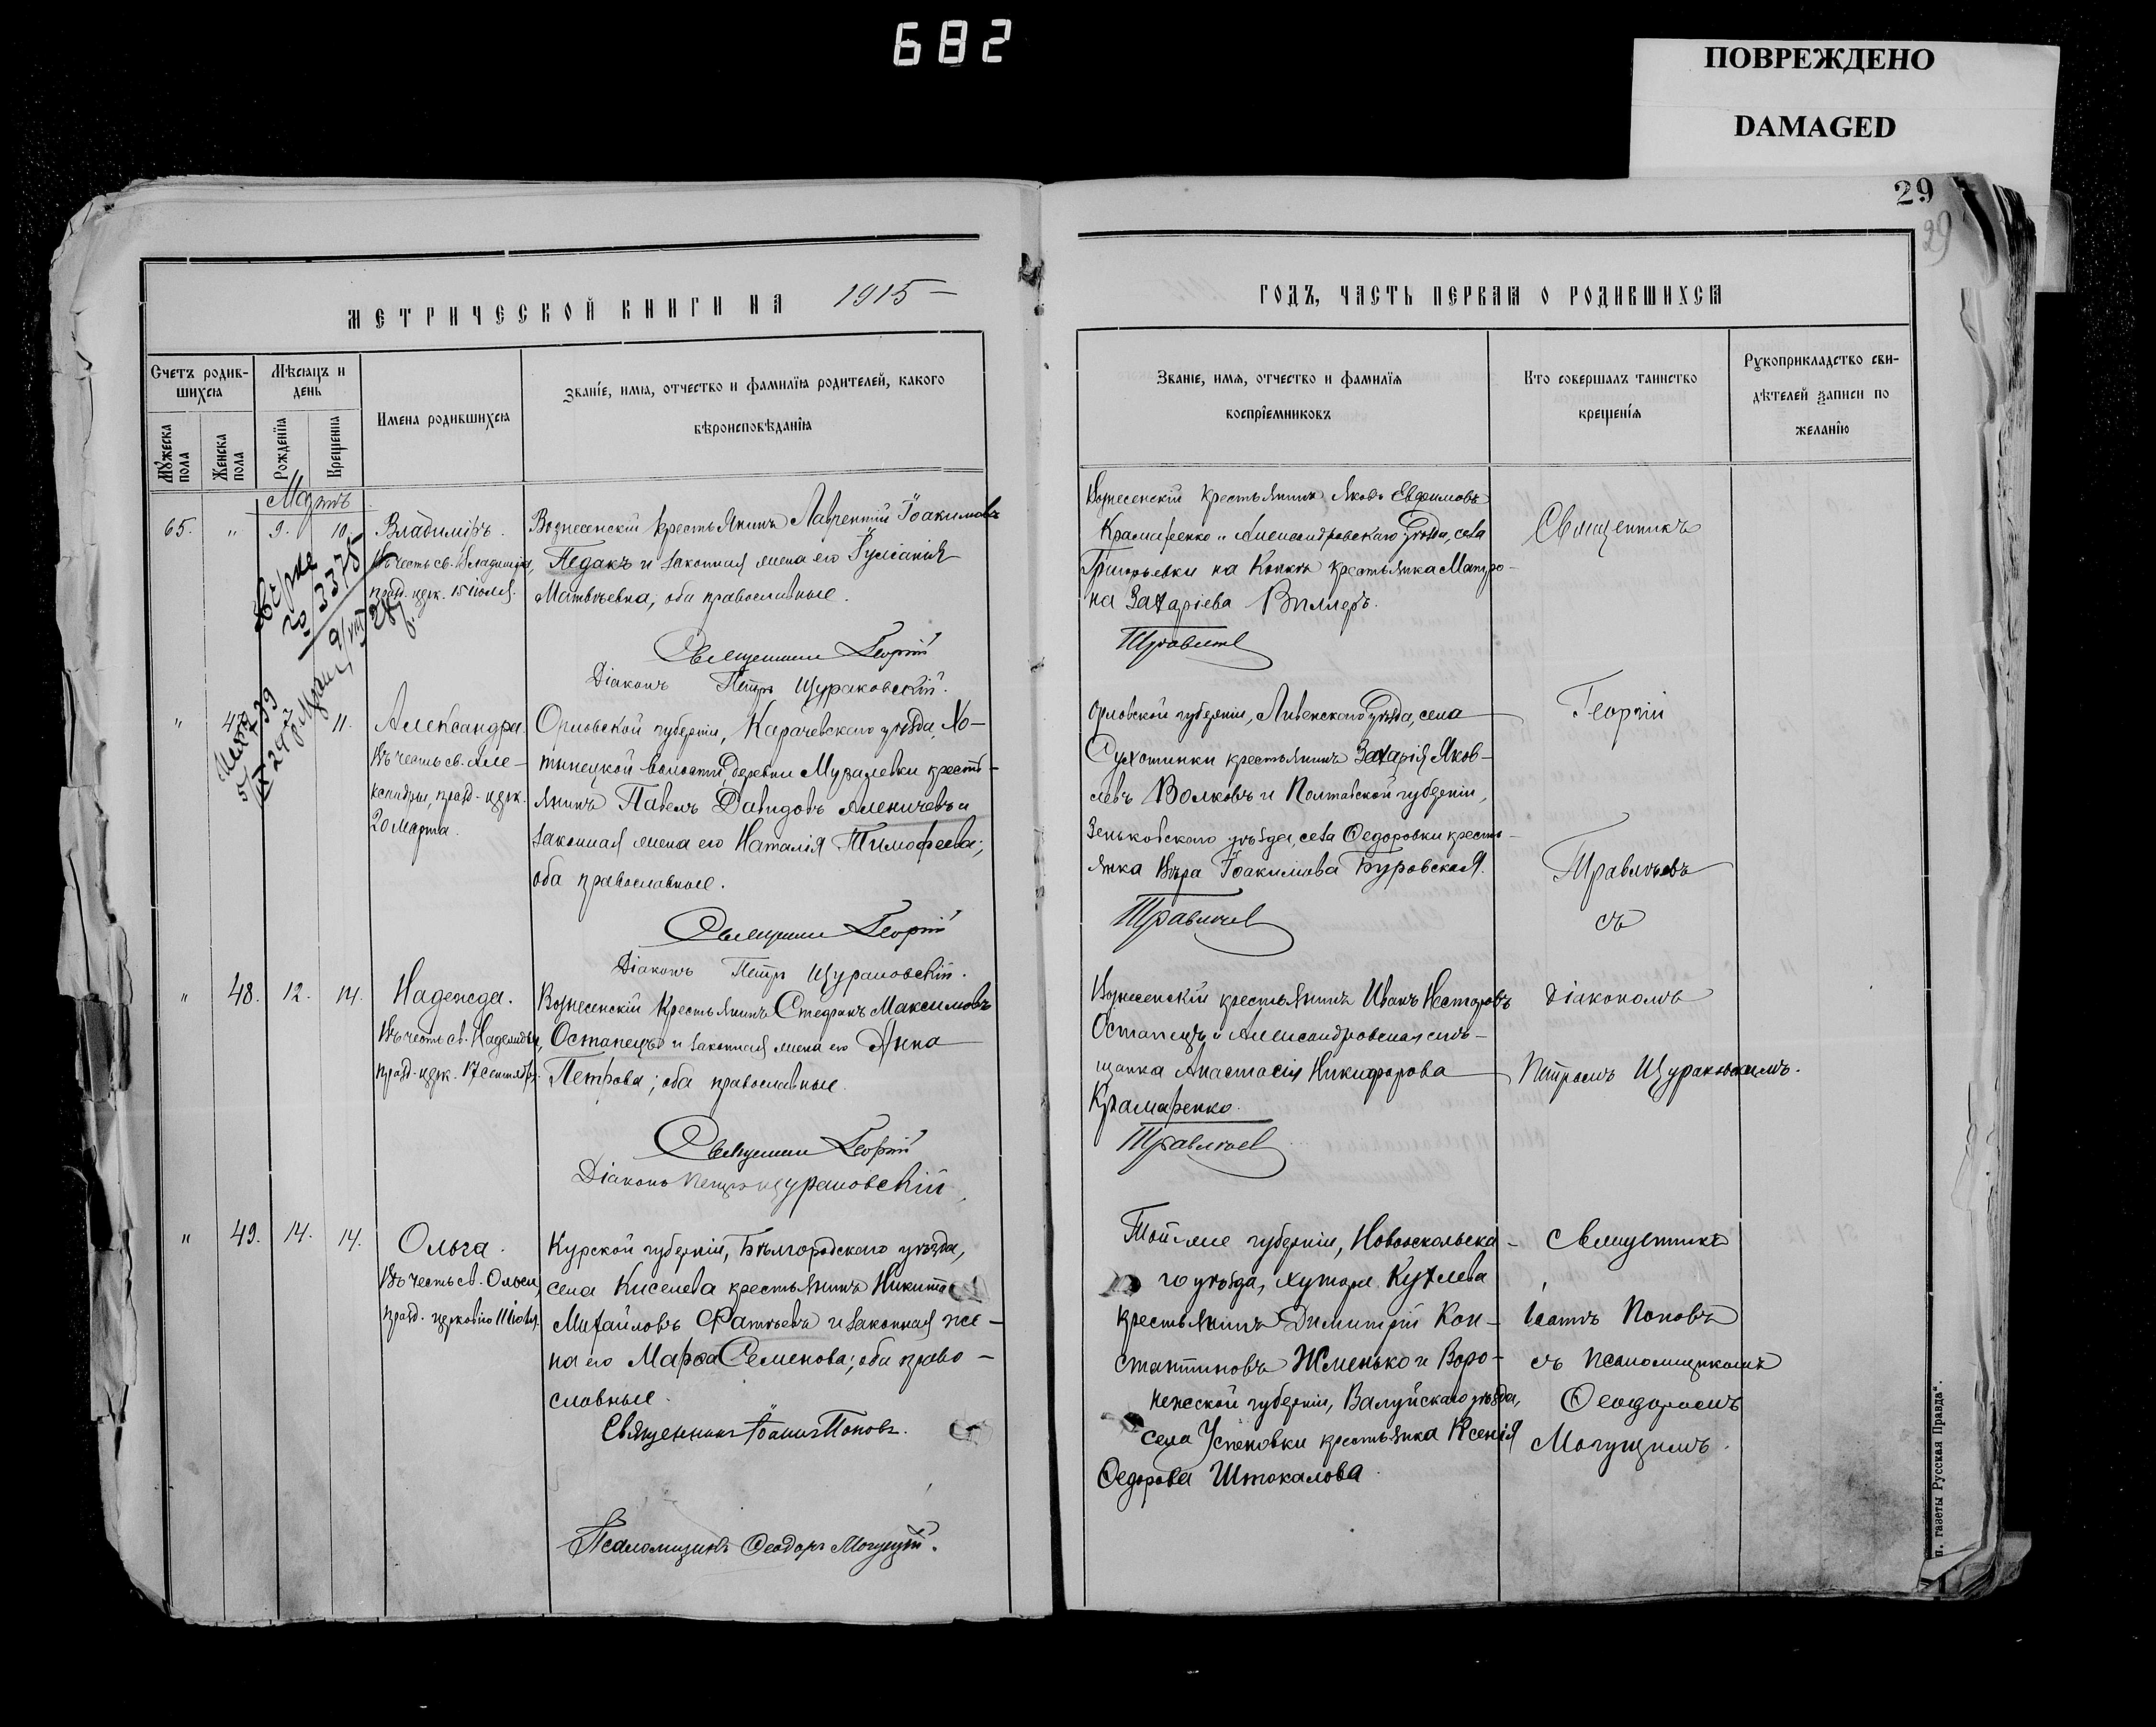 682
ПОВРЕЖДЕНО
DAMAGED
29
29
МЕТРИЧЕСКОЙ КНИГИ НА 1915
Счетъ родившихся
Мѣсяцъ и день
Имена родившихся
Званіе, имя, отчество и фамилія родителей, какого
вѣроисповѣданія
Мужеска пола
Женска пола
Рожденія
Крещенія
Мартъ
65. " 9. 10.
Владиміръ.
Въ честь св. Владиміра,
празд. церк. 15 іюля.
Вознесенскій крестьянинъ Лаврентій Іоакимовъ
Педакъ и законная жена его Іуліанія
Матвѣевна, оба православные.
Священникъ Георгій
Діаконъ Петръ Щураковскій.
3375
" 47 11.
Александра.
Въ честь св. Але-
ксандры, празд. церк.
20 Марта.
Орловской губерніи, Карачевскаго уѣзда, Хо-
тынецкой волости деревни Музалевки кресть-
янинъ Павелъ Давидовъ Аленичевъ и
законная жена его Наталія Тимофеева;
оба православные.
Священникъ Георгій
Діаконъ Петръ Щураковскій.
" 48. 12. 14.
Надежда.
Въ честь св. Надежды,
празд. церк. 17 сентябр.
Вознесенскій крестьянинъ Стефанъ Максимовъ
Остапецъ и законная жена его Анна
Петрова; оба православные.
Священникъ Георгій
Діаконъ Петръ Щураковскій
" 49. 14. 14.
Ольга.
Въ честь св. Ольги,
празд. церковію 11 іюля.
Курской губерніи, Бѣлгородскаго уѣзда,
села Киселева крестьянинъ Никита
Михайловъ Фатѣевъ и законная же-
на его Марѳа Семенова; оба право-
славные.
Священникъ Іоаннъ Поповъ.
Псаломщикъ Ѳеодоръ Могущій.
ГОДЪ, ЧАСТЬ ПЕРВАЯ О РОДИВШИХСЯ
Званіе, имя, отчество и фамилія
воспріемниковъ
Кто совершалъ таинство
крещенія
Рукоприкладство сви-
дѣтелей записи по
желанію
Вознесенскій крестьянинъ Яковъ Евфимовъ
Крамаренко и Александровскаго уѣзда, села
Григорьевки на Конкѣ крестьянка Матро-
на Захаріева Виллеръ.
Травлѣевъ
Орловской губерніи, Ливенскаго уѣзда, села
Сухотинки крестьянинъ Захарія Яков-
левъ Волковъ и Полтавской губерніи,
Зеньковскаго уѣзда, села Ѳедоровки кресть-
янка Вѣра Іоакимова Буровская.
Травлѣевъ
Вознесенскій крестьянинъ Иванъ Несторовъ
Остапецъ и Александровская мѣ-
щанка Анастасія Никифорова
Крамаренко.
Травлѣевъ
Той-же губерніи, Новооскольска-
го уѣзда, хутора
крестьянинъ Димитрій Кон-
стантиновъ Жменько и Воро-
нежской губерніи, Валуйскаго уѣзда,
села Успеновки крестьянка Ксенія
Ѳедорова Штокалова.
Священникъ
Георгій
Травлѣевъ
съ
діакономъ
Петромъ Щураковскимъ.
Священникъ
Іоаннъ Поповъ
съ псаломщикомъ
Ѳеодоромъ
Могущимъ.
п. газеты Русская Правда".